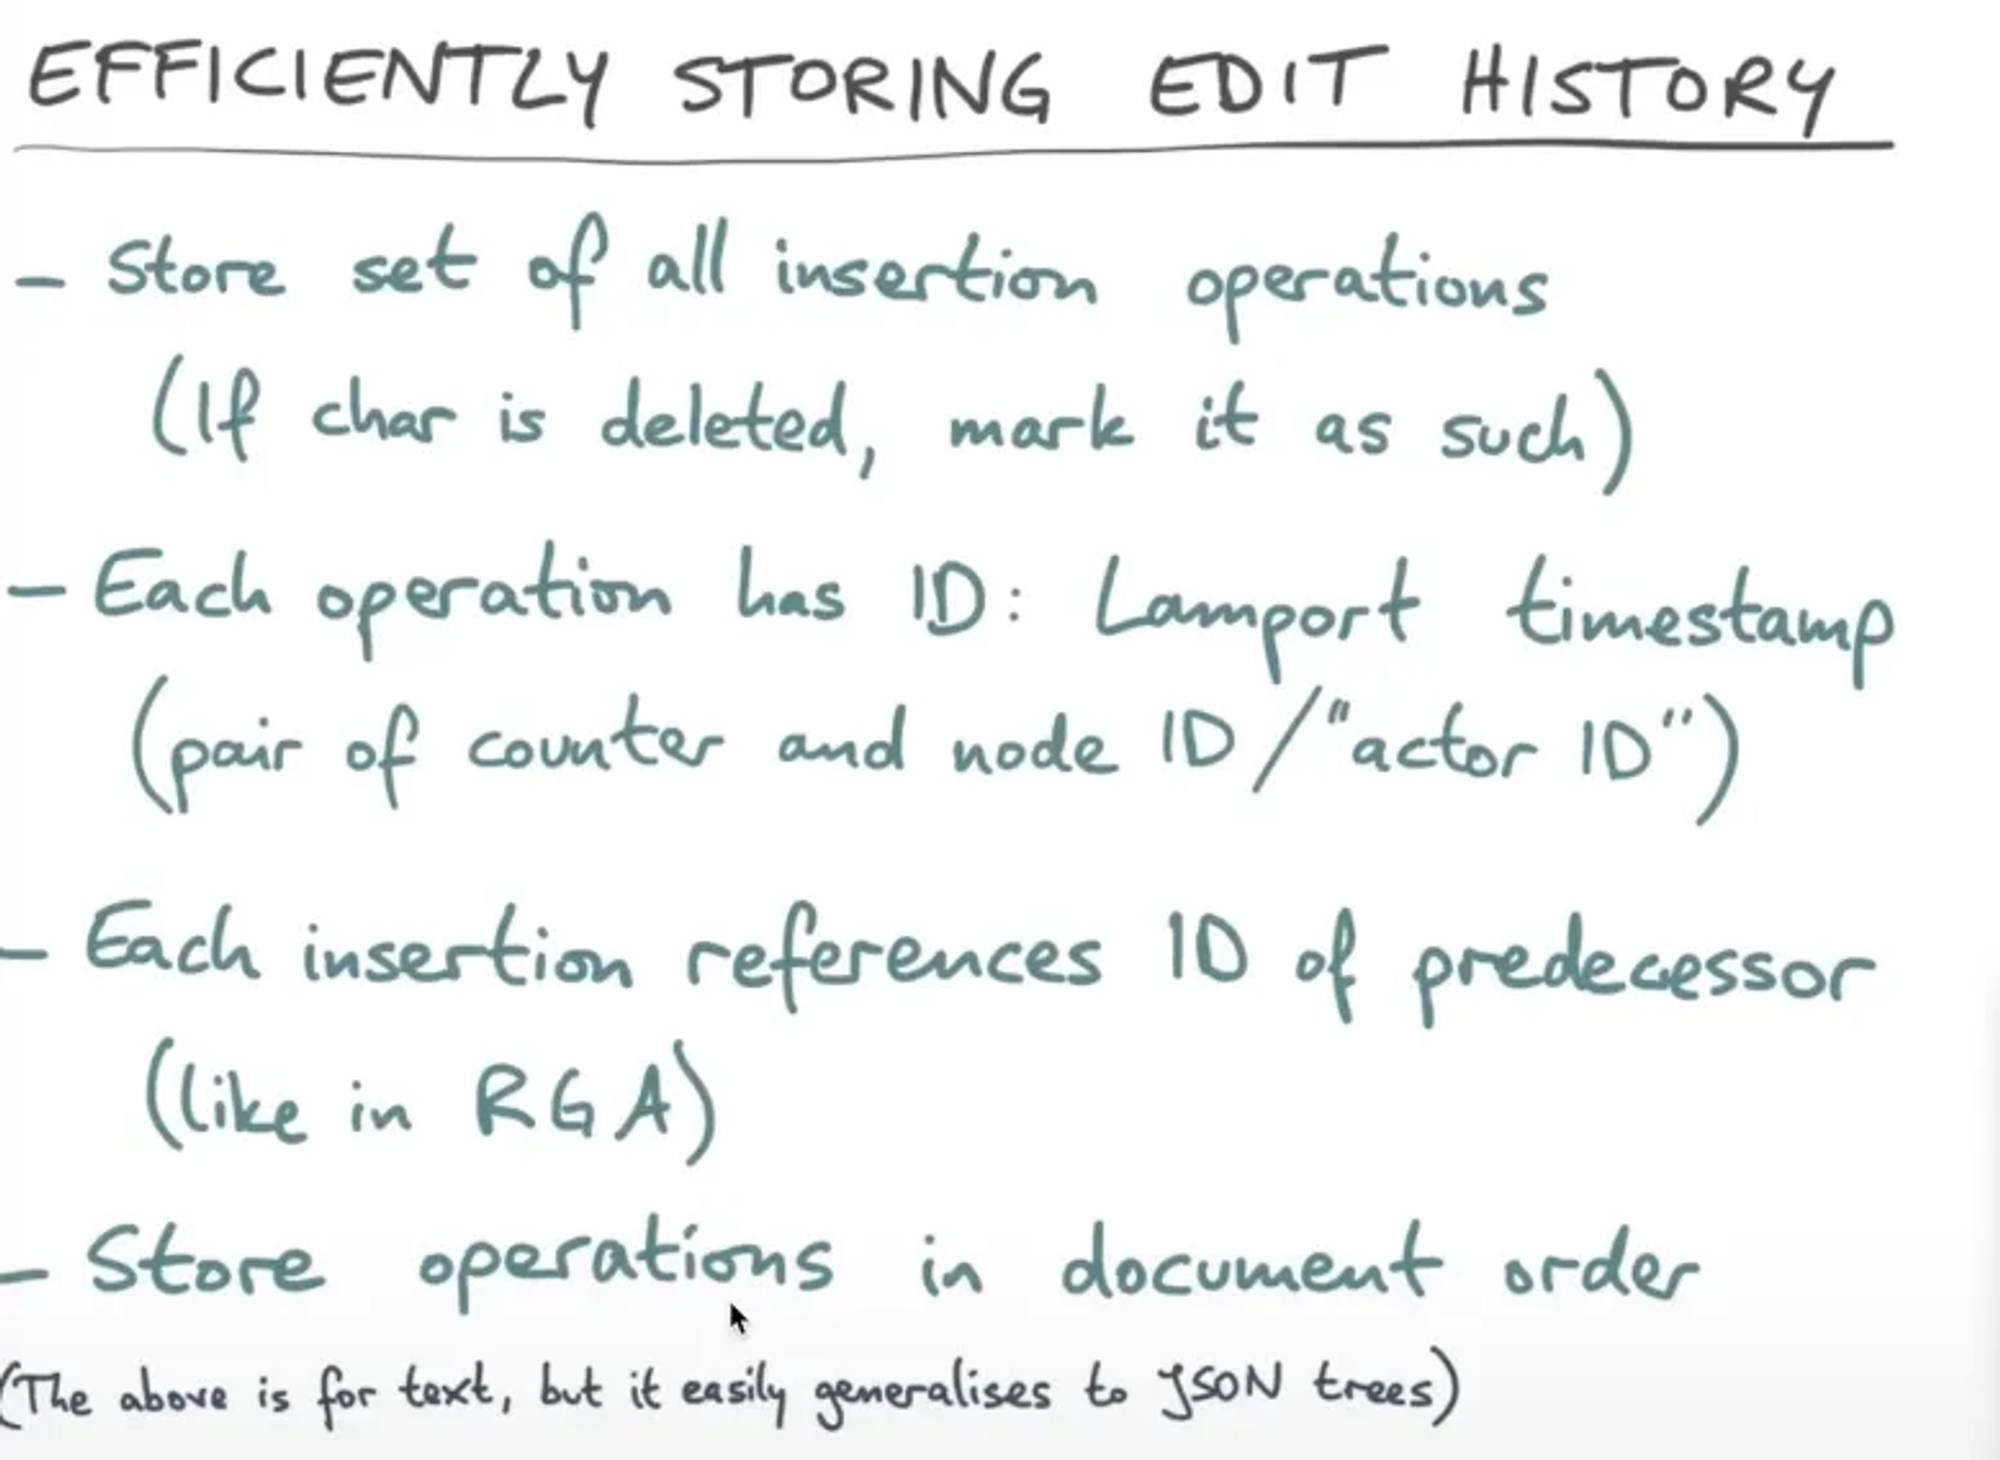 EFFICIENTLY STORING EDIT HISTORY
- Store set of all insertion operations
(If char is deleted, mark it as such)
- Each operation has ID: Lamport timestamp
(pair of counter and node ID/"actor ID")
- Each insertion references ID of predecessor
(like in RGA)
- Store operations in document order
(The above is for text, but it easily generalises to JSON trees)